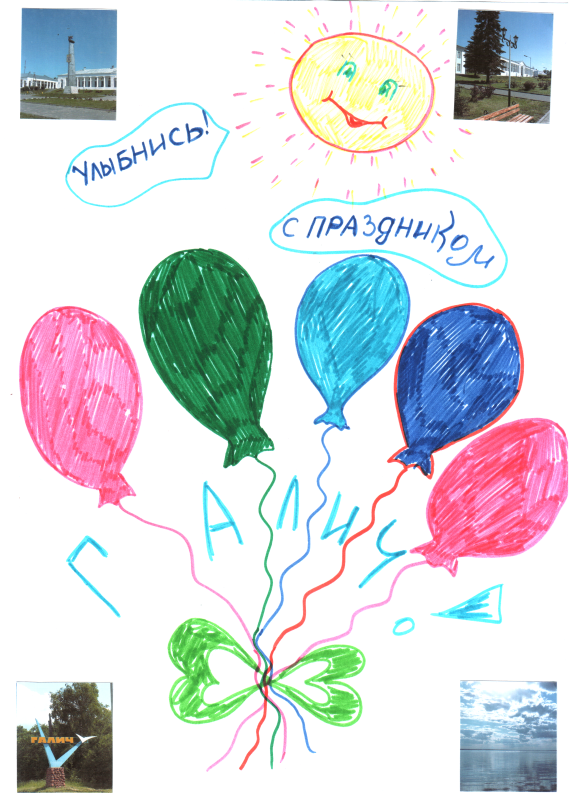 УЛЫБНИСЬ!
С ПРАЗДНИКОМ
ГАЛИЧ!
ГАЛИЧ